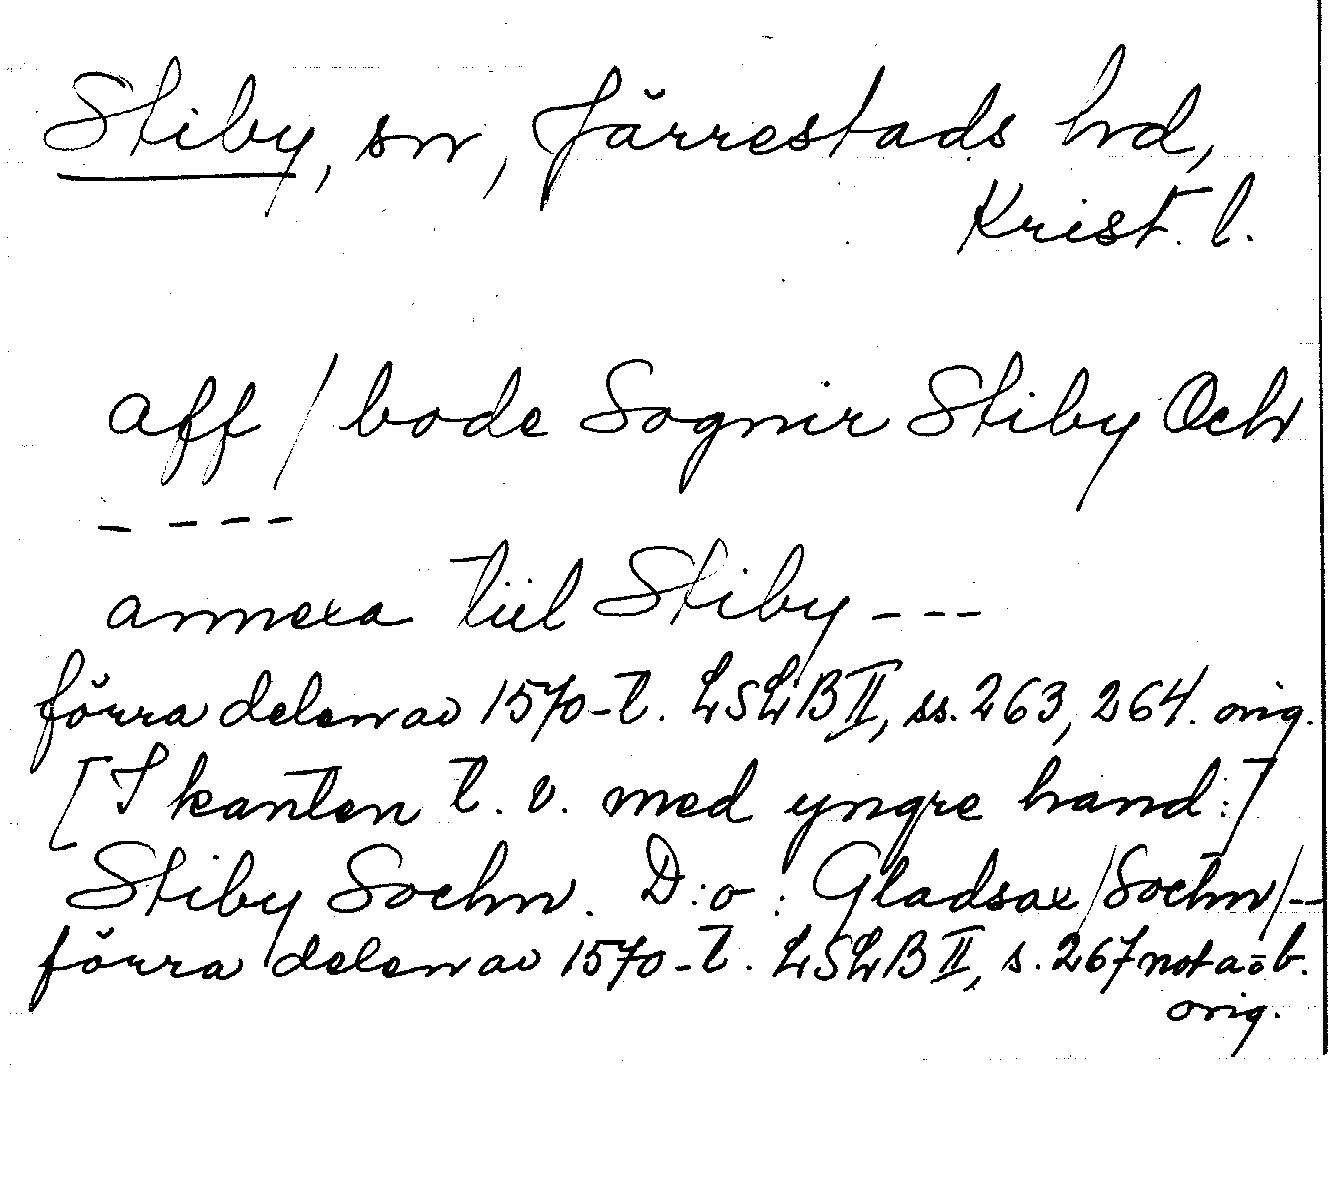 Stiby, sn, Järrestads hd,
Krist. l.
aff / bode Sognir Stiby Och
- - - -
annexa tiil Stiby - - -
förra delen av 1570-t. LSLB II, ss. 263, 264. orig.
[I kanten t. v. med yngre hand:]
Stiby Sochn. D:o: Gladsax /Sochn/-
förra delen av 1570-t. LSLB II, s. 267 not a o b.
orig.